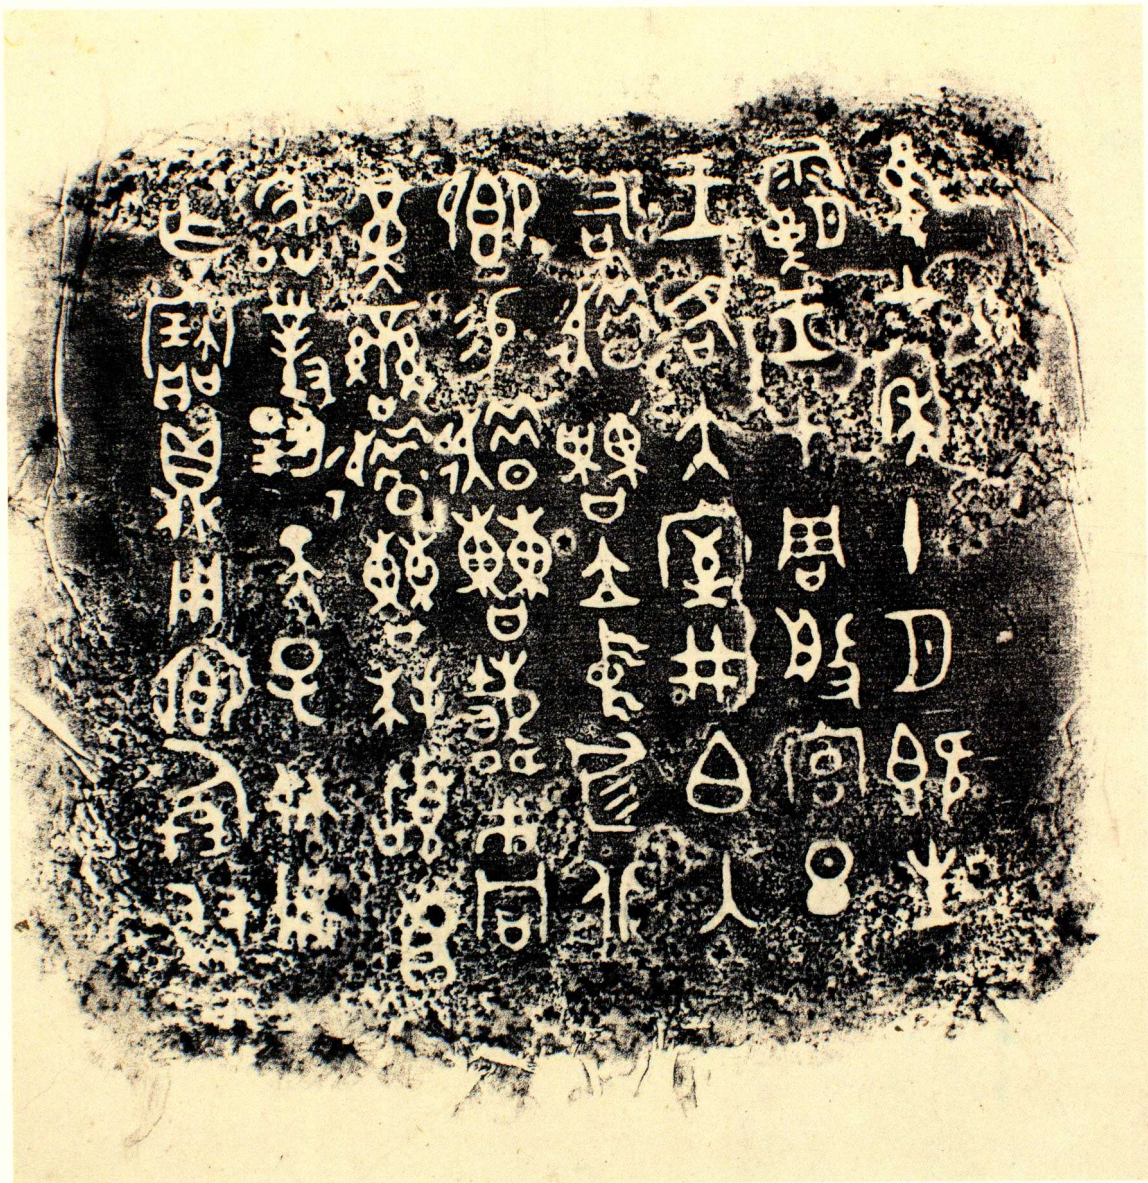 隹七年十月既生
霸王才周般宮旦
王各大室井白入
右趞曹立中廷北
鄉易趞曹載巿冋
黃䜌趞曹拜𩒨首
敢對揚天子休用
乍寶鼎用鄉倗友